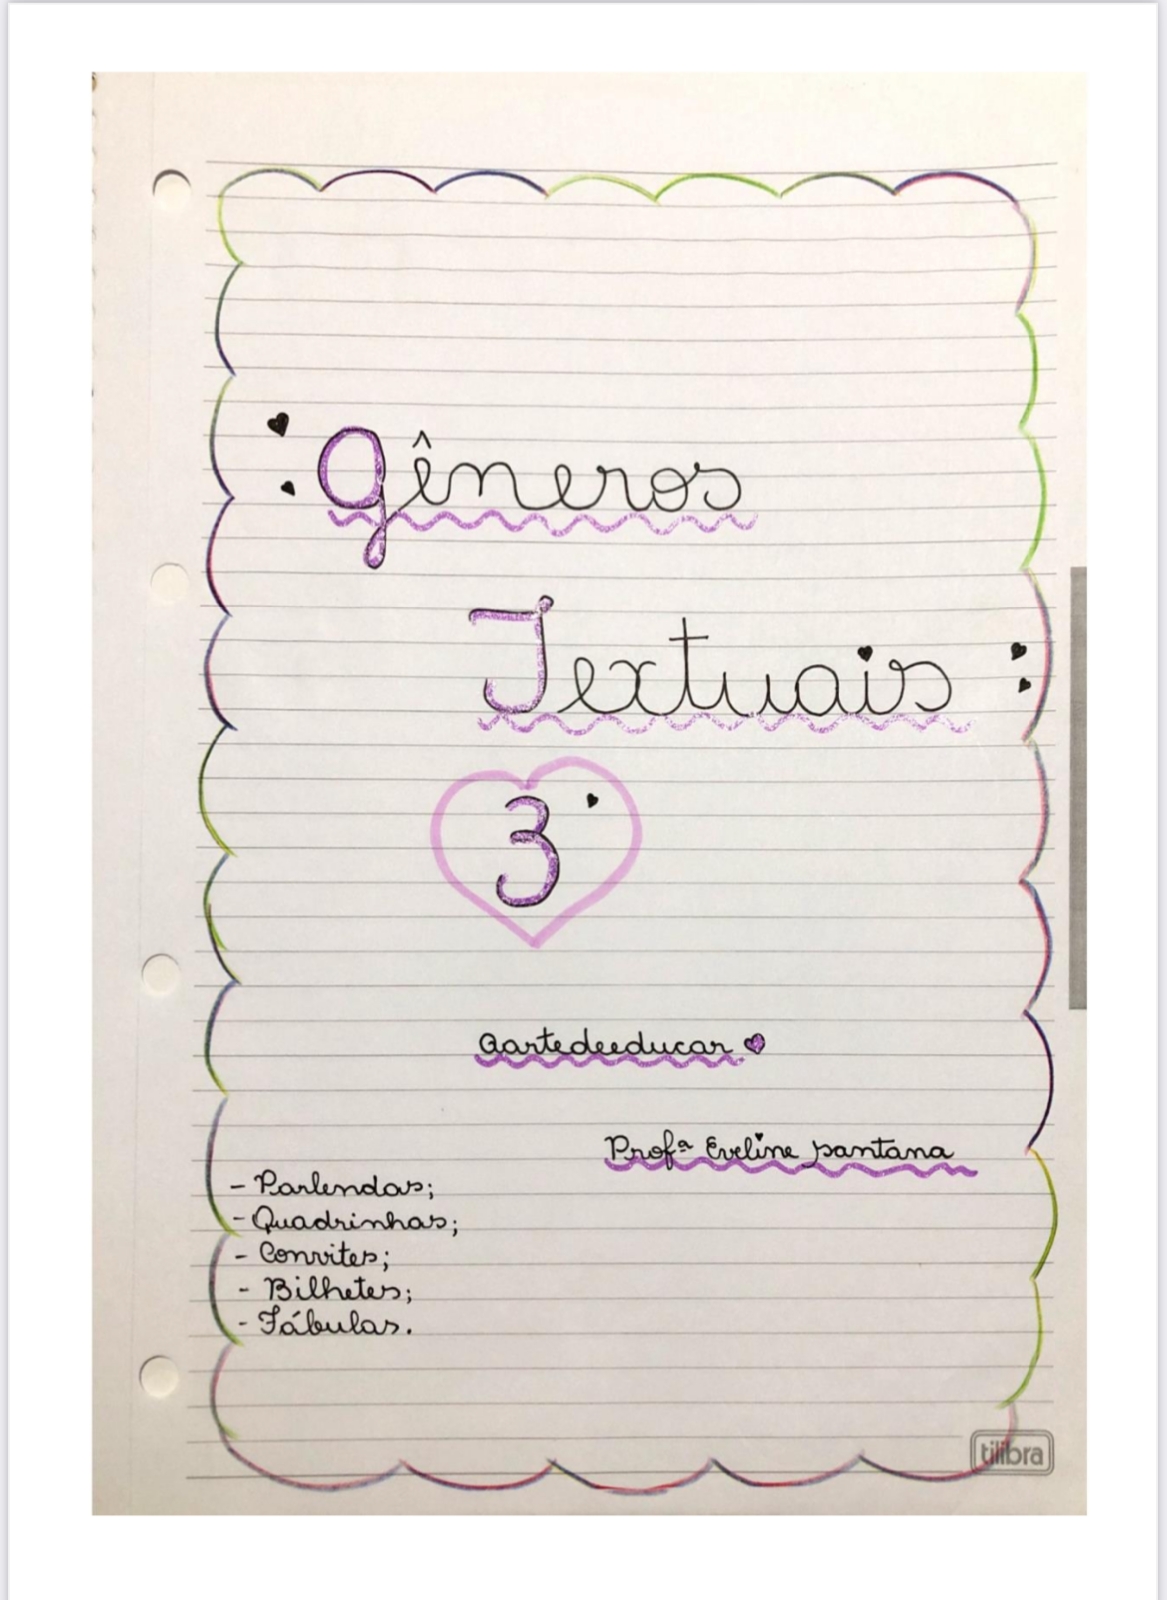 Gêneros
Textuais
3
aartedeeducar
Profª Eveline Santana
- Parlendas;
- Quadrinhas;
- Convites;
- Bilhetes;
- Fábulas.
tilibra